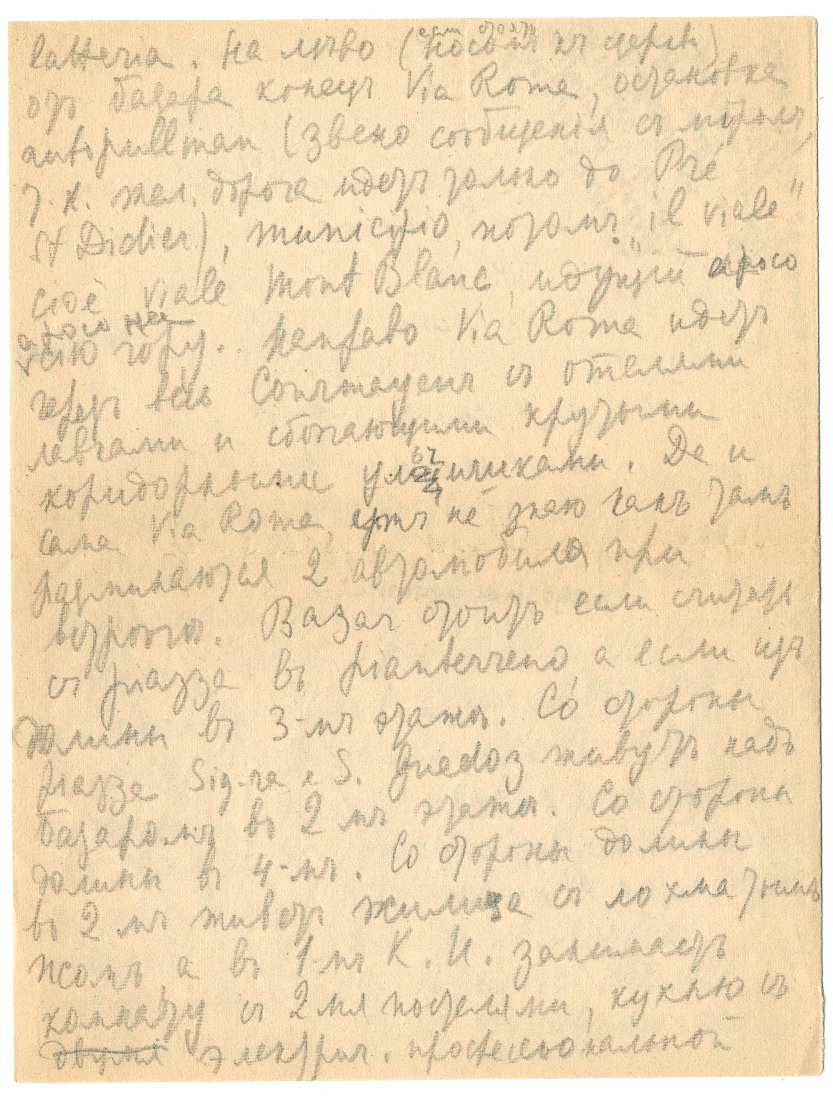 latteria. На лѣво (если стоять носомъ къ церкви)
отъ базара конецъ Via Roma, остановка
autopullman (звено сообщенія съ міромъ,
т.к. жел. дорога идетъ только до Pré
St Didier), municipio, потомъ "il viale"
cioè viale Mont Blanc, идущій
гору. Направо Via Roma идетъ
черезъ весь Courmayeur съ отелями
лавками и сбѣгающими крутыми
коридорными уличками. Да и
сама Via Roma, не знаю какъ тамъ
разминаются 2 автомобиля при
встрѣчѣ. Базаръ стоитъ если считать
съ piazza въ pianterreno, а если изъ
долины въ 3-мъ этажѣ. Со стороны
piazza Sig-ra e S. Guedoz живутъ надъ
базаромъ въ 2 мъ этажѣ. Со стороны
долины въ 4-мъ. Со стороны долины
въ 2 мъ живетъ жилица съ лохматымъ
псомъ, а въ 1-мъ К. И. занимаетъ
комнату съ 2мя постелями, кухню съ
электрич. профессіональной